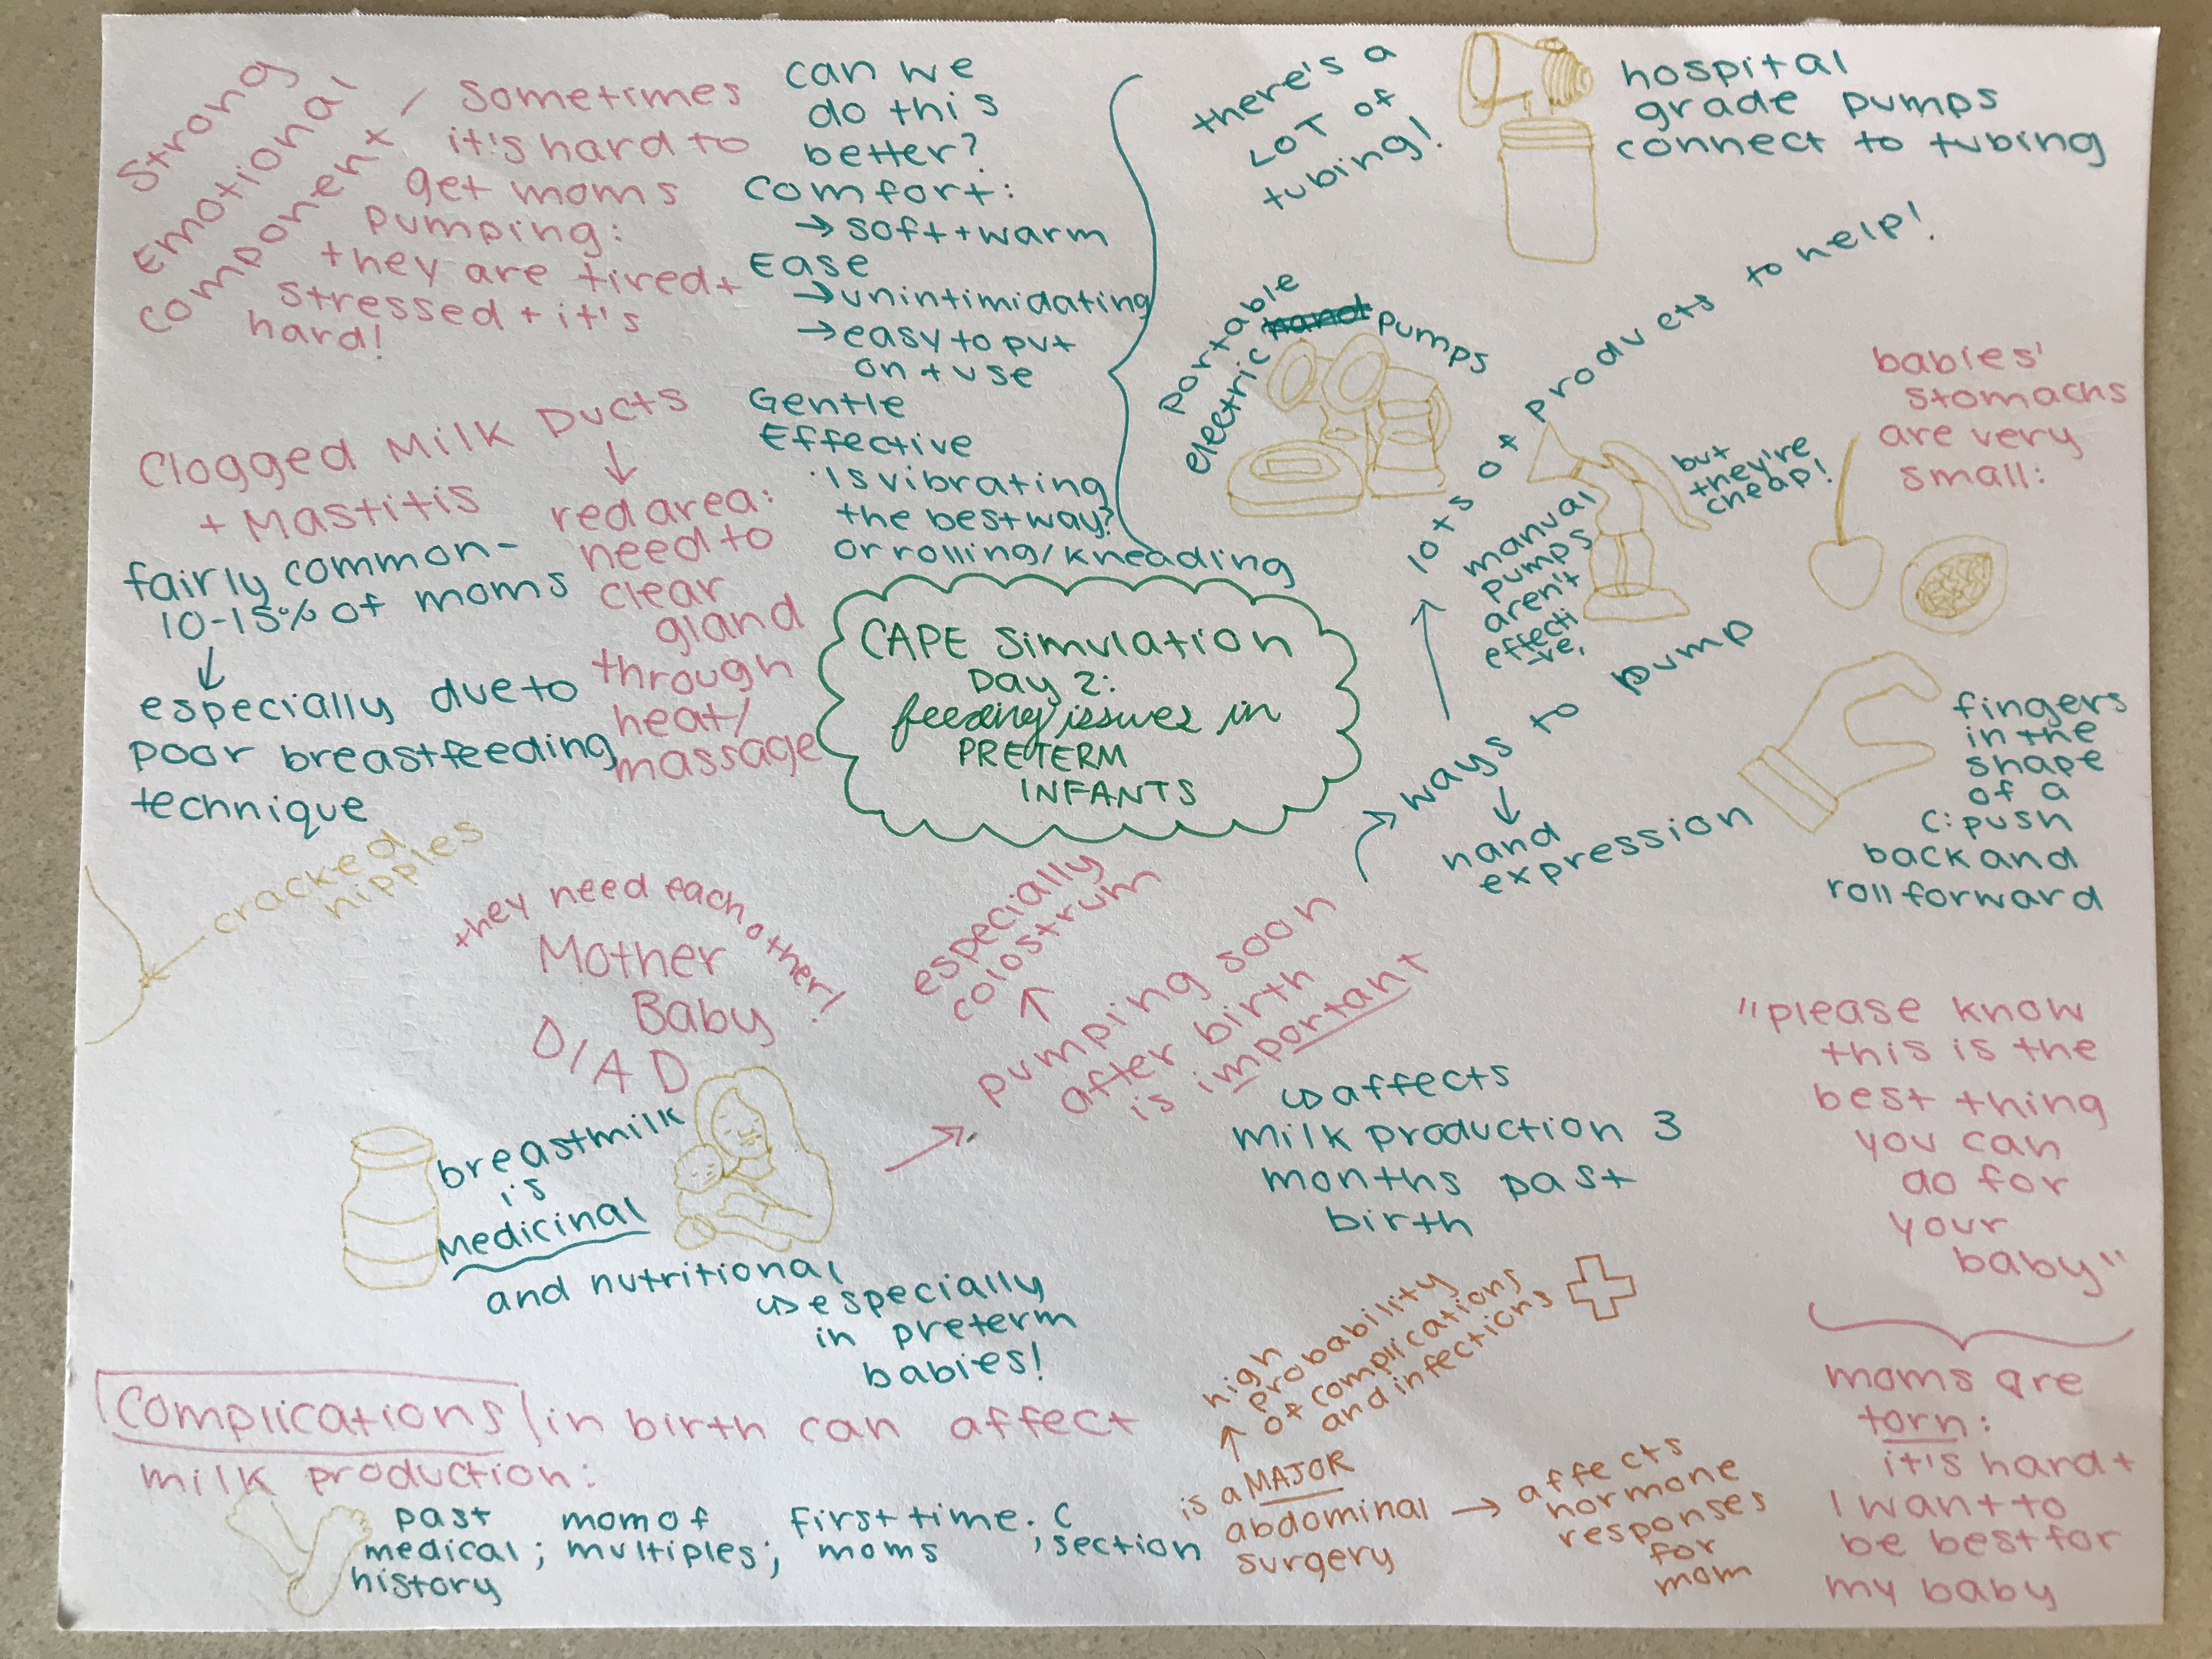 Strong
Emotional
component
/ sometimes
it's hard to
get moms
pumping:
they are tired +
stressed + it's
hard!
can we
do this
better?
comfort:
→ soft + warm
Ease
→ unintimidating
→ easy to put
on + use
Gentle
Effective
· Is vibrating
the best way?
or rolling/kneading
there's a
LOT of
tubing!
hospital
grade pumps
connect to tubing
portable
electric hand pumps
lots of products to help!
manual
pumps
aren't
effecti
-ve,
but
they're
cheap!
babies'
stomachs
are very
small:
Clogged Milk Ducts
+ Mastitis
fairly common-
10-15% of moms
↓
especially due to
poor breastfeeding
technique
↓
red area:
need to
clear
gland
through
heat/
massage
CAPE Simulation
Day 2:
feeding issues in
PRETERM
INFANTS
ways to pump
↓
hand
expression
fingers
in the
shape
of a
C: push
back and
roll forward
cracked
nipples
they need each other!
Mother
Baby
DIAD
breastmilk
is
medicinal
and nutritional
↳ especially
in preterm
babies!
especially
colostrum
↑
pumping soon
after birth
is important
↳ affects
milk production 3
months past
birth
"please know
this is the
best thing
you can
do for
your
baby"
moms are
torn:
it's hard +
I want to
be best for
my baby
Complications in birth can affect
milk production:
past
medical;
history
mom of
multiples;
first time
moms
; C
section
is a MAJOR
abdominal
surgery
↑
high
probability
of complications
and infections
→ affects
hormone
responses
for
mom